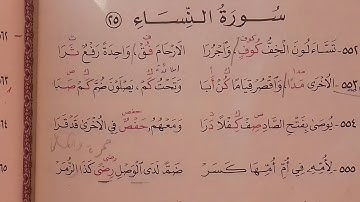 سُورَةُ النِّسَاءِ (٢٥)
٥٥٢- تَسَّاءَلُونَ الْخِفُّ كُوفٍ وَاجْرُرَا الْأَرْحَامَ فُقْ، وَاحِدَةٌ رَفْعٌ ثَرَا
٥٥٣- الْأُخْرَى مَدًا، وَاقْصُرْ قِيَامًا كُنْ أَبَا وَتَحْتُ كَمْ، يَصْلَوْنَ ضُمَّ كَمْ صَبَا
٥٥٤- يُوصَى بِفَتْحِ الصَّادِ صِفْ كِفْلًا دَرَا وَمَعْهُمُ حَفْصٌ فِي الْأُخْرَى قَدْ قَرَا
٥٥٥- لِأُمِّهِ فِي أُمِّ أُمِّهَا كَسَرْ ضَمًّا لَدَى الْوَصْلِ رِضًى كَذَا الزُّمَرْ